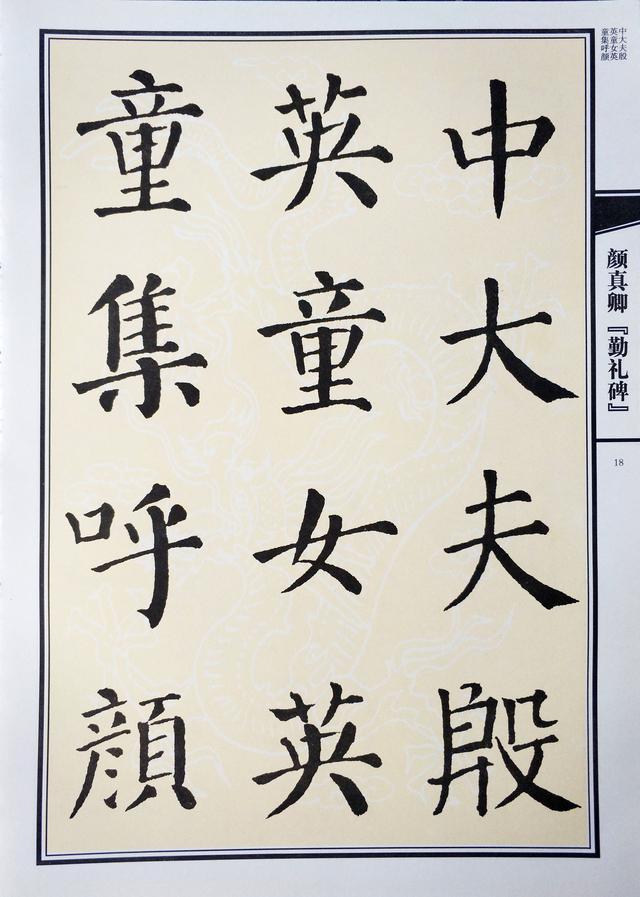 中大夫殷
英童女英
童集呼顔
中大夫殷
英童女英
童集呼颜
颜真卿『勤礼碑』
18